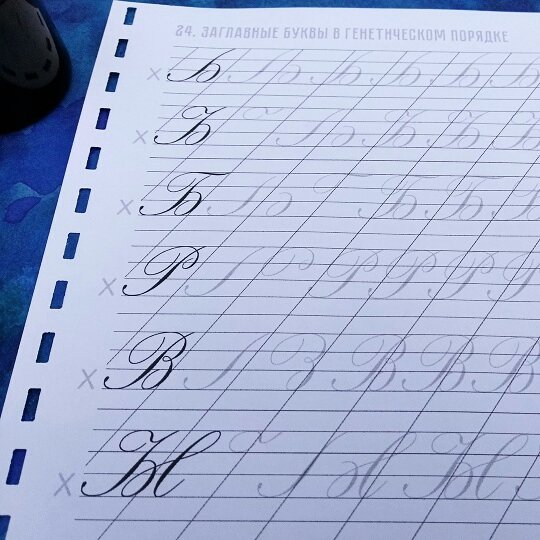 24. ЗАГЛАВНЫЕ БУКВЫ В ГЕНЕТИЧЕСКОМ ПОРЯДКЕ
x Б Б Б Б Б
x Б Б Б Б
x Б Б Б Б
x Р Р Р Р Р
x В В В В
x Ы Ы Ы